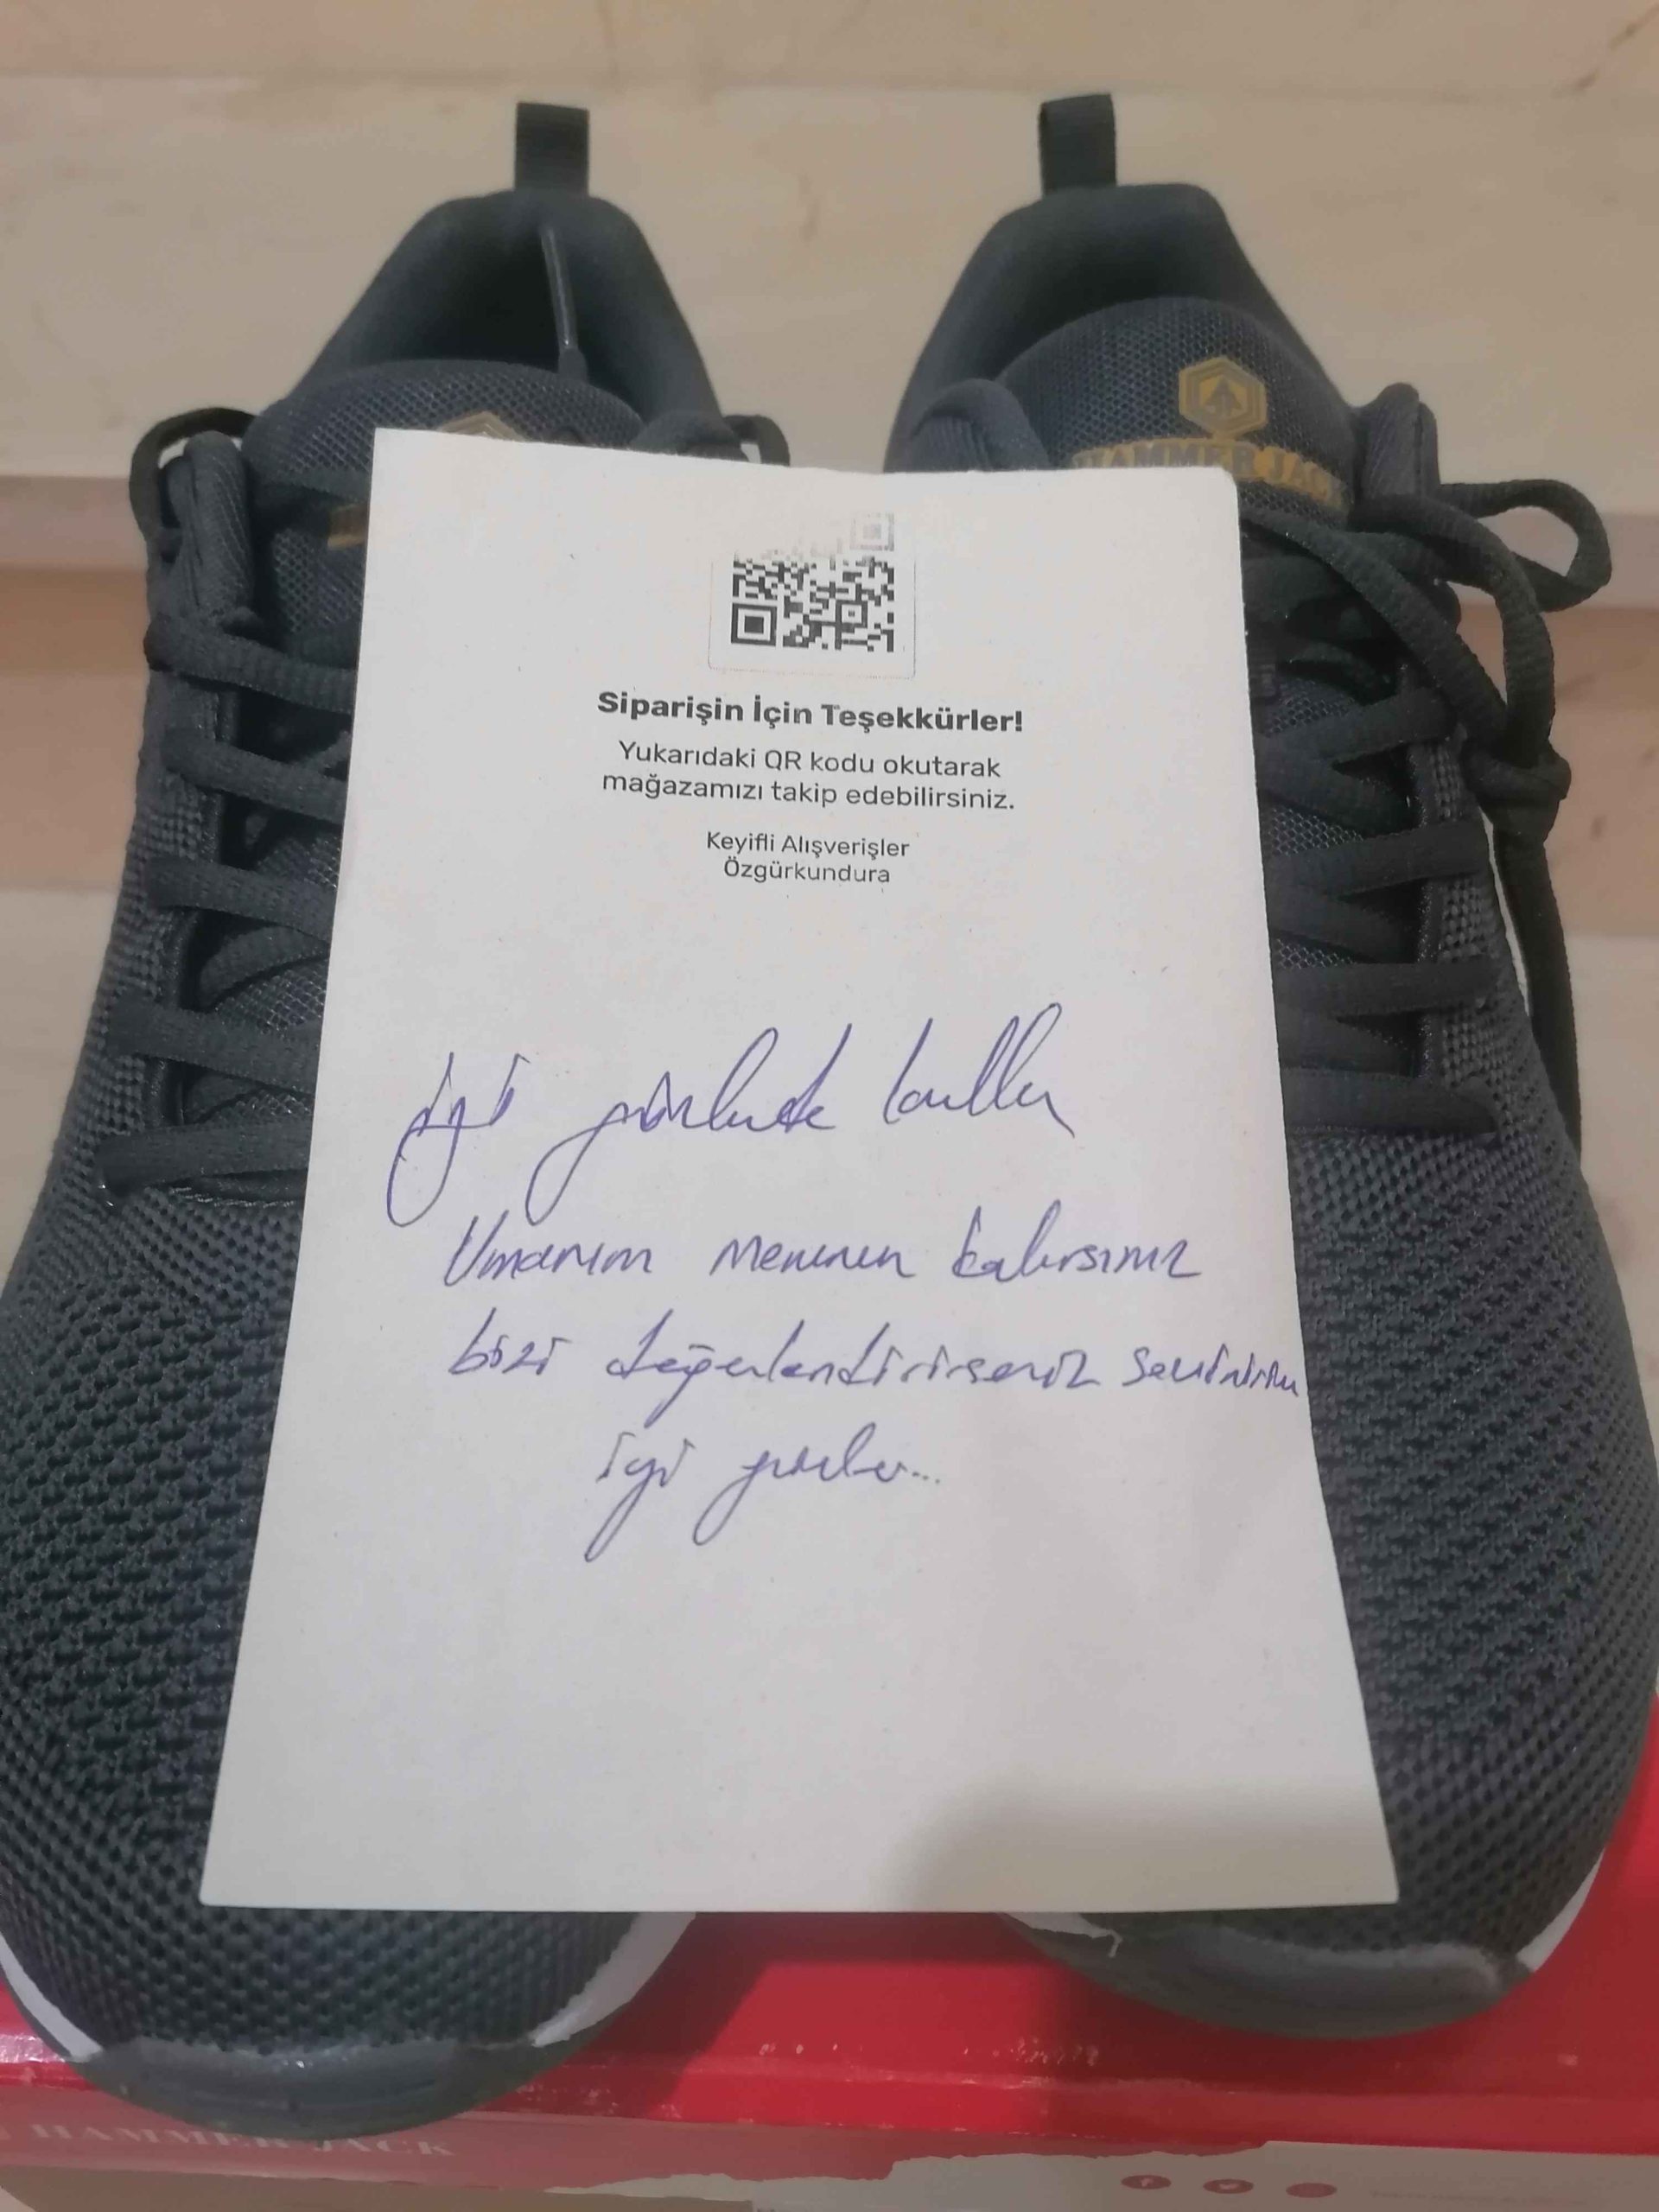 HAMMER JACK
Siparişin İçin Teşekkürler!
Yukarıdaki QR kodu okutarak
mağazamızı takip edebilirsiniz.
Keyifli Alışverişler
Özgürkundura
iyi günlerde
Umarım memnun kalırsınız
bizi değerlendirirseniz sevinirim
iyi günler...
HAMMER JACK